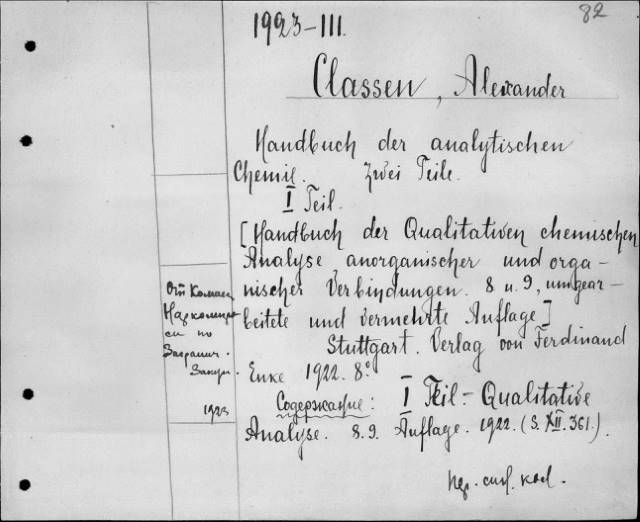 82
1923-III.
Classen, Alexander
Handbuch der analytischen
Chemie. Zwei Teile.
I Teil.
[Handbuch der Qualitativen chemischen
Analyse anorganischer und orga-
nischer Verbindungen. 8 u. 9, umgear-
beitete und vermehrte Auflage]
Stuttgart. Verlag von Ferdinand
Enke 1922. 8°
Содержание: I Teil - Qualitative
Analyse. 8.9. Auflage. 1922. (S. XII. 361.).
От
по
Загранич.
Закуп.
1923